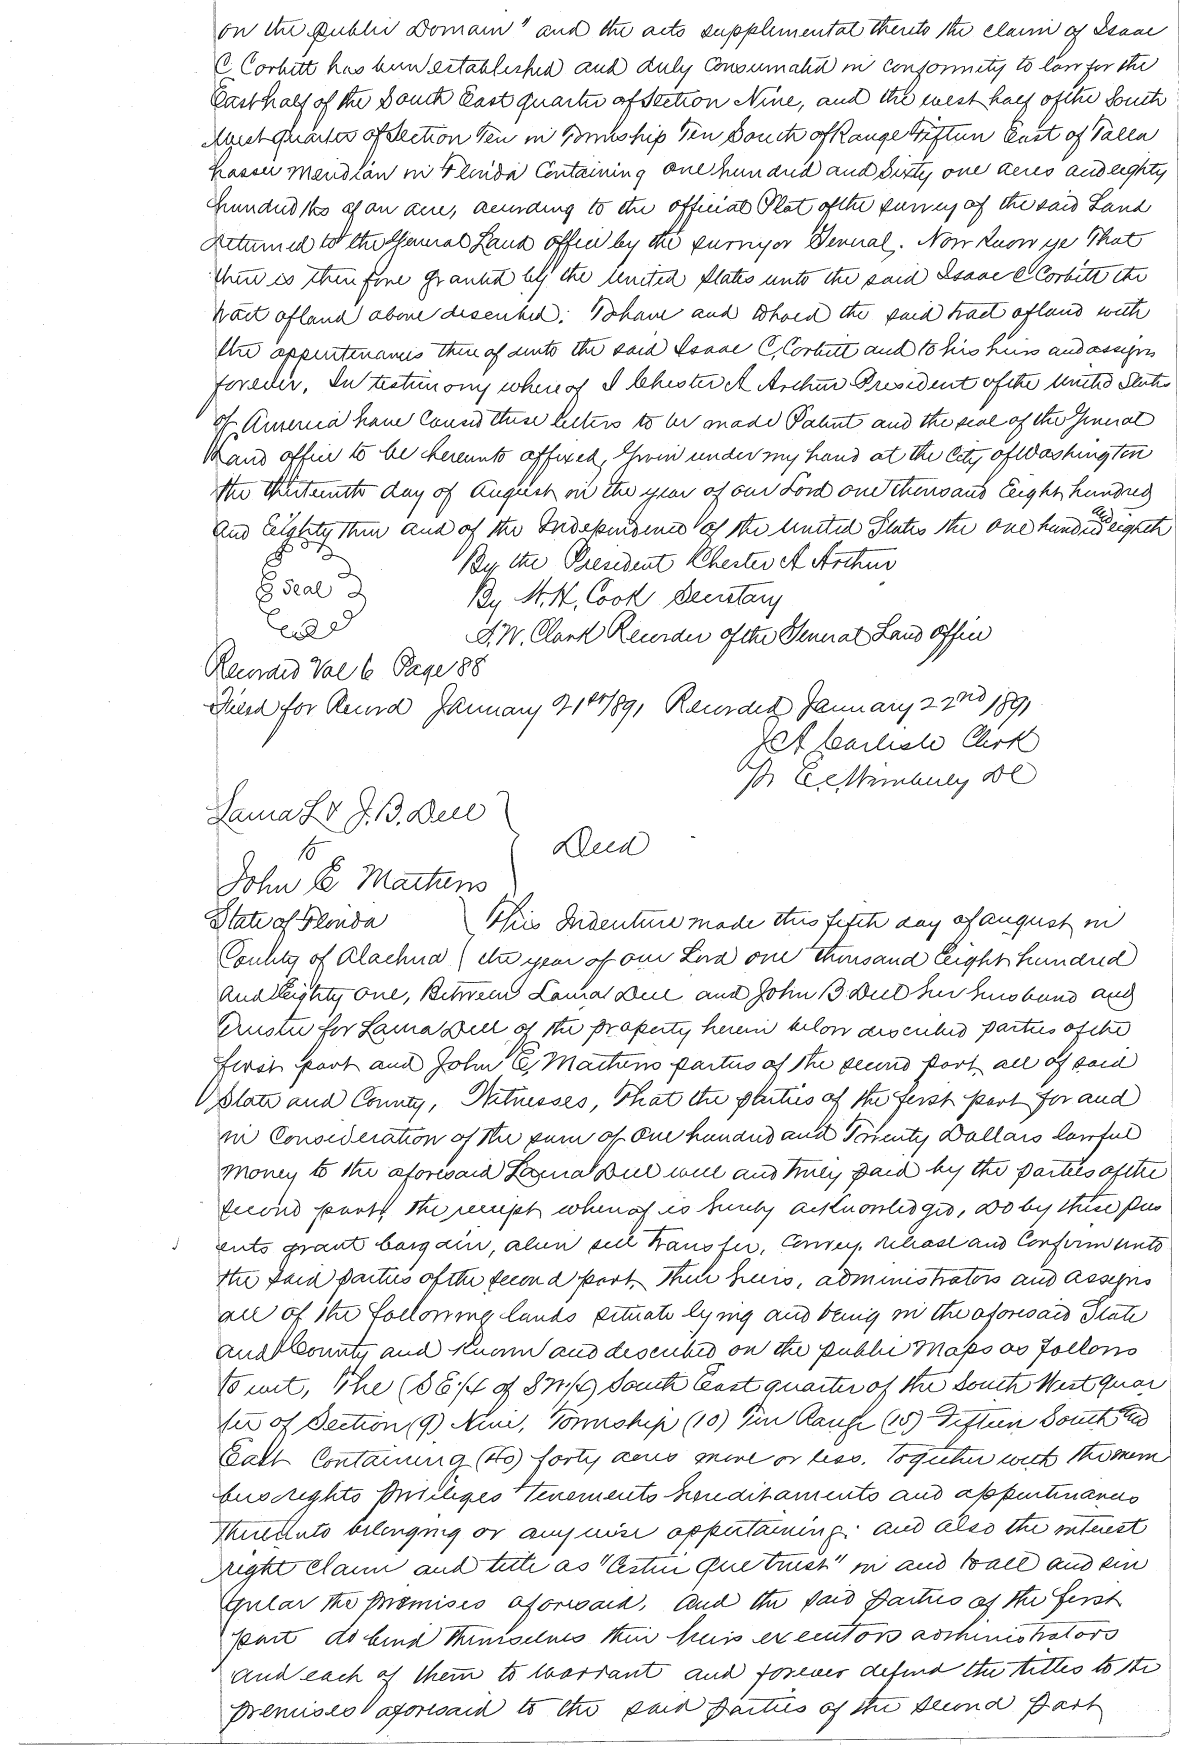 on the public Domain" and the acts supplemental thereto the claim of Isaac
C. Corbitt has been established and duly Consumated in conformity to law for the
East half of the South East quarter of Section Nine, and the west half of the South
West quarter of Section Ten in Township Ten South of Range Fifteen East of Talla
hassee Meridian in Florida Containing one hundred and Sixty one acres and eighty
hundredths of an acre, according to the official Plat of the survey of the said Land
returned to the General Land office by the surveyor General. Now Know ye That
there is therefore granted by the United States unto the said Isaac C Corbitt the
tract of land above described; To have and to hold the said tract of land with
the appurtenances thereof unto the said Isaac C. Corbitt and to his heirs and assigns
forever, In testimony whereof I Chester A Arthur President of the United States
of America have caused these letters to be made Patent and the seal of the General
Land office to be hereunto affixed, Given under my hand at the City of Washington
the thirteenth day of August in the year of our Lord one thousand Eight hundred
and Eighty three and of the Independence of the United States the one hundred and eighth
By the President Chester A Arthur
Seal
By W. H. Cook Secretary
S. W. Clark Recorder of the General Land Office
Recorded Vol 6 Page 88
Filed for Record January 21st 1891 Recorded January 22nd 1891
J A Carlisle Clerk
pr E. C. Wimberley DC
Laura L & J. B. Dell
to
Deed
John E Mathews
State of Florida
County of Alachua
This Indenture made this fifth day of august in
the year of our Lord one thousand Eight hundred
and Eighty one, Between Laura Dell and John B Dell her husband and
Trustee for Laura Dell of the property herein below described parties of the
first part and John E. Mathews parties of the second part all of said
State and County, Witnesses, That the parties of the first part for and
in Consideration of the sum of one hundred and Twenty Dollars lawful
money to the aforesaid Laura Dell well and truly paid by the parties of the
second part, the receipt whereof is hereby acknowledged, do by these pres
ents grant bargain, alien sell transfer, convey, release and Confirm unto
the said parties of the second part, their heirs, administrators and assigns
all of the following lands situate lying and being in the aforesaid State
and County and Known and described on the public Maps as follows
to wit, The (S E 1/4 of S W 1/4) South East quarter of the South West quar
ter of Section (9) Nine, Township (10) Ten Range (15) Fifteen South and
East Containing (40) forty acres more or less. Together with the mem
bers rights privileges tenements hereditaments and appurtinances
thereunto belonging or anywise appertaining: and also the interest
right claim and title as "Cestui que trust" in and to all and sin
gular the premises aforesaid, and the said parties of the first
part do bind themselves their heirs executors administrators
and each of them to warrant and forever defend the titles to the
premises aforesaid to the said parties of the second part